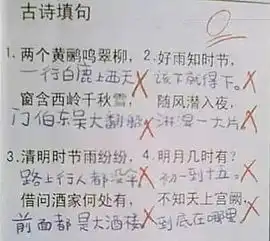 古诗填句
0
1. 两个黄鹂鸣翠柳，
一行白鹿上西天
窗含西岭千秋雪，
门伯东吴大翻船
2. 好雨知时节，
该下就得下。
随风潜入夜，
淋湿一大片
3. 清明时节雨纷纷，
路上行人都没伞
借问酒家何处有，
前面都是大酒楼
4. 明月几时有？
初一到十五。
不知天上宫阙，
到底在哪里